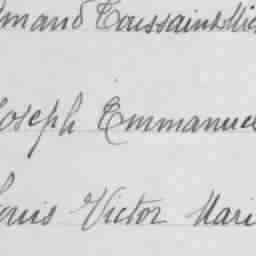 mand Toussaint Mic
Joseph Emmanuel
Louis Victor Mari